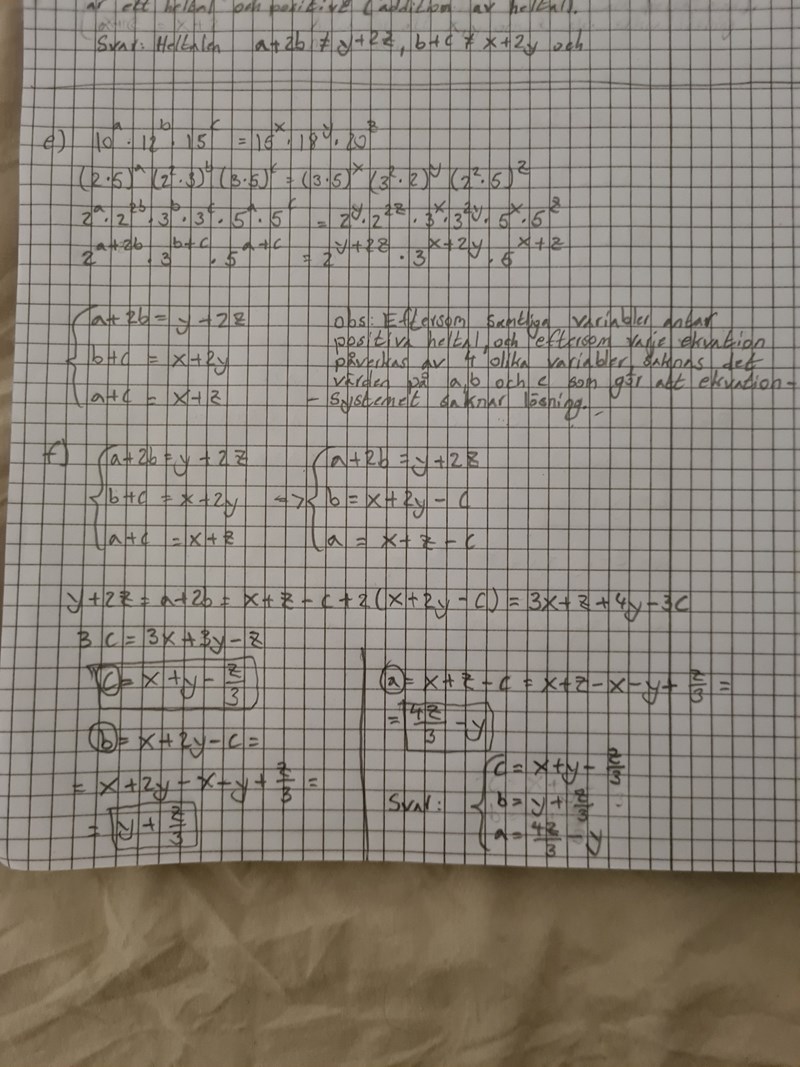 är ett heltal och positivt (addition av heltal).
Svar: Heltalen a+2b ≠ y+2z, b+c ≠ x+2y och
e) 10^a · 12^b · 15^c = 15^x · 18^y · 20^z
(2·5)^a (2²·3)^b (3·5)^c = (3·5)^x (3²·2)^y (2²·5)^z
2^a · 2^2b · 3^b · 3^c · 5^a · 5^c = 2^y · 2^2z · 3^x · 3^2y · 5^x · 5^z
2^a+2b · 3^b+c · 5^a+c = 2^y+2z · 3^x+2y · 5^x+z
a+2b = y+2z
b+c = x+2y
a+c = x+z
obs: Eftersom samtliga variabler antar
positiva heltal, och eftersom varje ekvation
påverkas av 4 olika variabler, saknas det
värden på a,b och c som gör att ekvation-
- Systemet saknar lösning.
f) a+2b = y+2z a+2b = y+2z
b+c = x+2y <-> b = x+2y-c
a+c = x+z a = x+z-c
y+2z = a+2b = x+z-c+2(x+2y-c) = 3x+z+4y-3c
3c = 3x+3y-z
c = x+y-z/3
b = x+2y-c =
= x+2y-x-y+z/3 =
= y+z/3
a = x+z-c = x+z-x-y+z/3 =
= 4z/3 - y
Svar: c = x+y-z/3
b = y+z/3
a = 4z/3 - y